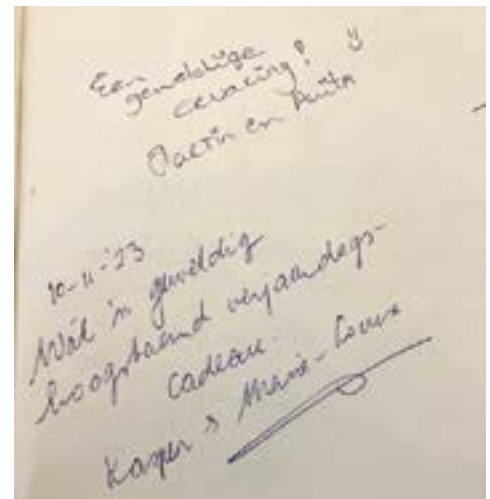 Een
geweldige
ervaring! ☺
Martin en Anita
10-11-'23
Wát 'n geweldig
hoogstaand verjaardags-
cadeau.
Kasper & Marie-Louise